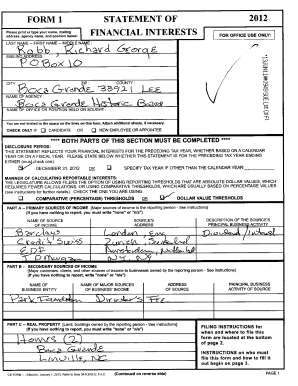 FORM 1
STATEMENT OF
2012
Please print or type your name, mailing
address, agency name, and position below:
FINANCIAL INTERESTS
FOR OFFICE USE ONLY:
LAST NAME -- FIRST NAME -- MIDDLE NAME:
Robb, Richard George
MAILING ADDRESS:
PO Box 10
CITY: ZIP: COUNTY:
Boca Grande 33921 Lee
NAME OF AGENCY:
Boca Grande Historic Board
NAME OF OFFICE OR POSITION HELD OR SOUGHT:
You are not limited to the space on the lines on this form. Attach additional sheets, if necessary.
CHECK ONLY IF CANDIDATE OR NEW EMPLOYEE OR APPOINTEE
**** BOTH PARTS OF THIS SECTION MUST BE COMPLETED ****
DISCLOSURE PERIOD:
THIS STATEMENT REFLECTS YOUR FINANCIAL INTERESTS FOR THE PRECEDING TAX YEAR, WHETHER BASED ON A CALENDAR
YEAR OR ON A FISCAL YEAR. PLEASE STATE BELOW WHETHER THIS STATEMENT IS FOR THE PRECEDING TAX YEAR ENDING
EITHER (must check one):
DECEMBER 31, 2012 OR SPECIFY TAX YEAR IF OTHER THAN THE CALENDAR YEAR:
MANNER OF CALCULATING REPORTABLE INTERESTS:
THE LEGISLATURE ALLOWS FILERS THE OPTION OF USING REPORTING THRESHOLDS THAT ARE ABSOLUTE DOLLAR VALUES, WHICH
REQUIRES FEWER CALCULATIONS, OR USING COMPARATIVE THRESHOLDS, WHICH ARE USUALLY BASED ON PERCENTAGE VALUES
(see instructions for further details). CHECK THE ONE YOU ARE USING:
COMPARATIVE (PERCENTAGE) THRESHOLDS OR DOLLAR VALUE THRESHOLDS
PART A -- PRIMARY SOURCES OF INCOME [Major sources of income to the reporting person - See instructions]
(If you have nothing to report, you must write "none" or "n/a")
NAME OF SOURCE OF INCOME
SOURCE'S ADDRESS
DESCRIPTION OF THE SOURCE'S PRINCIPAL BUSINESS ACTIVITY
Barclays London
Credit Suisse Zurich
JP Morgan NY, NY
PART B -- SECONDARY SOURCES OF INCOME
[Major customers, clients, and other sources of income to businesses owned by the reporting person - See instructions]
(If you have nothing to report, you must write "none" or "n/a")
NAME OF BUSINESS ENTITY
NAME OF MAJOR SOURCES OF BUSINESS' INCOME
ADDRESS OF SOURCE
PRINCIPAL BUSINESS ACTIVITY OF SOURCE
Director's Fee
PART C -- REAL PROPERTY [Land, buildings owned by the reporting person - See instructions]
(If you have nothing to report, you must write "none" or "n/a")
Homes (2)
Boca Grande
Linville, NC
FILING INSTRUCTIONS for
when and where to file this
form are located at the bottom
of page 2.
INSTRUCTIONS on who must
file this form and how to fill it
out begin on page 3.
(Continued on reverse side)
PAGE 1